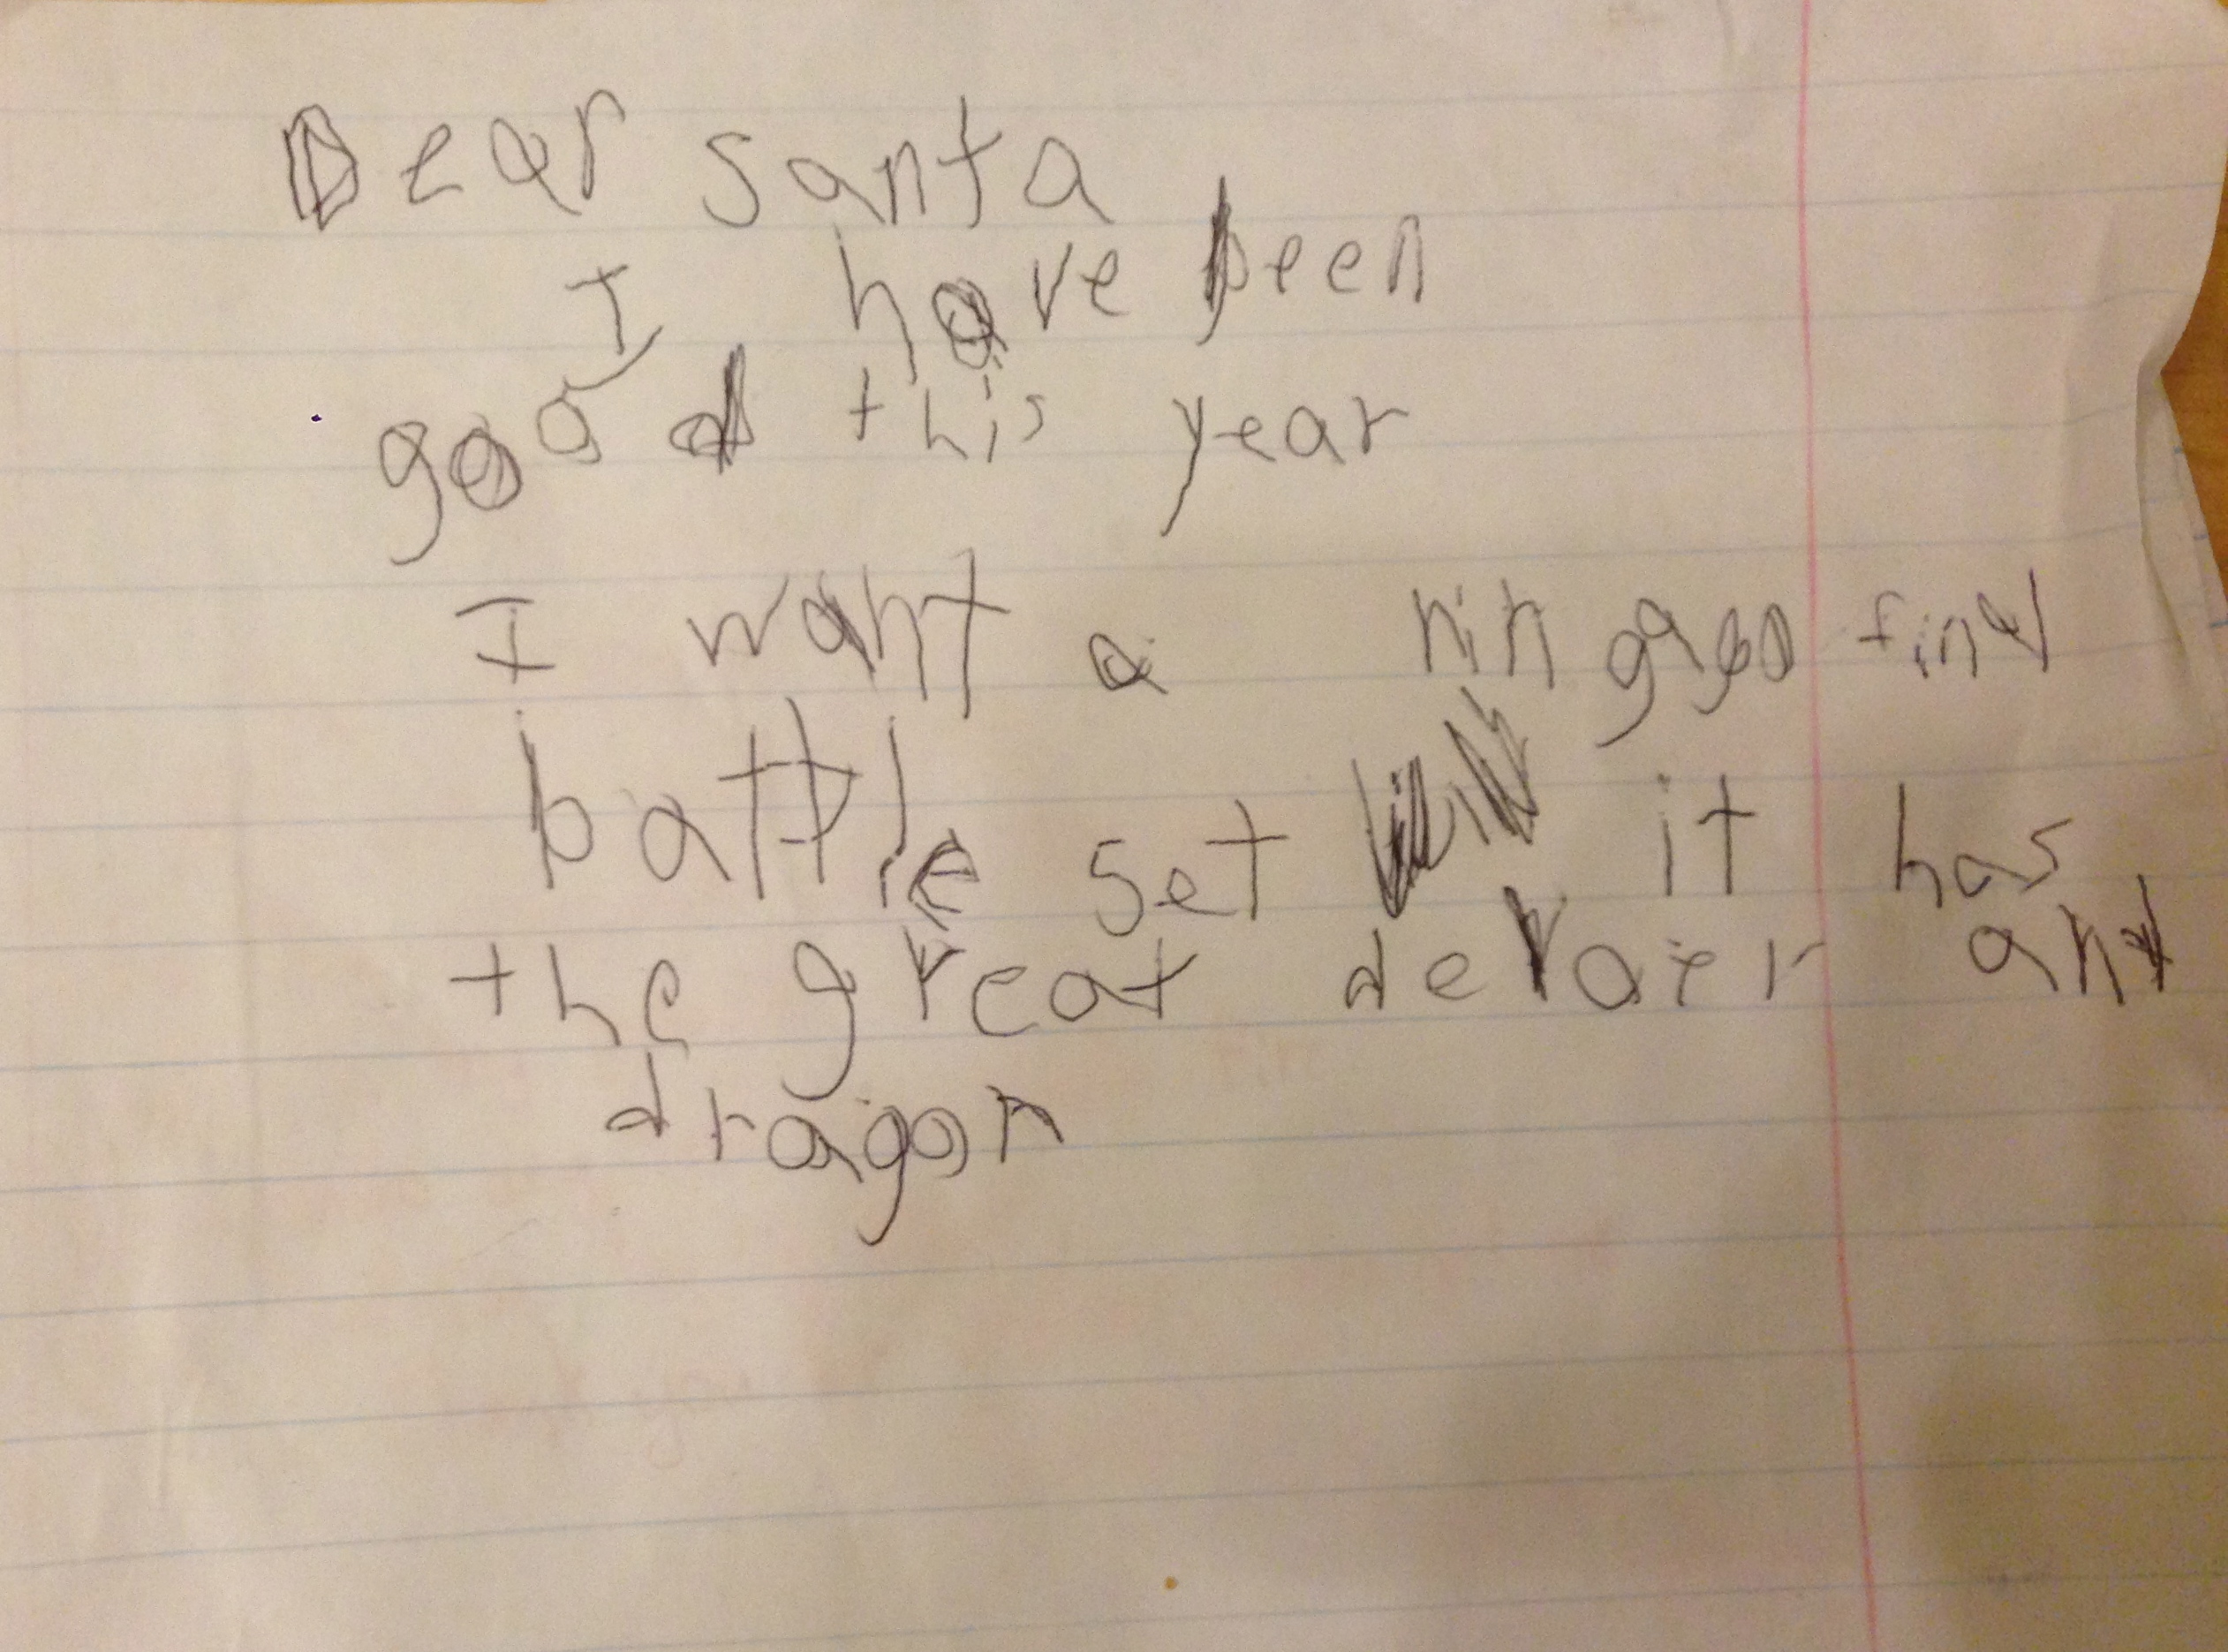 Dear santa
I have been
good this year
I want a ningago final
battle set it has
the great devaer and
dragon